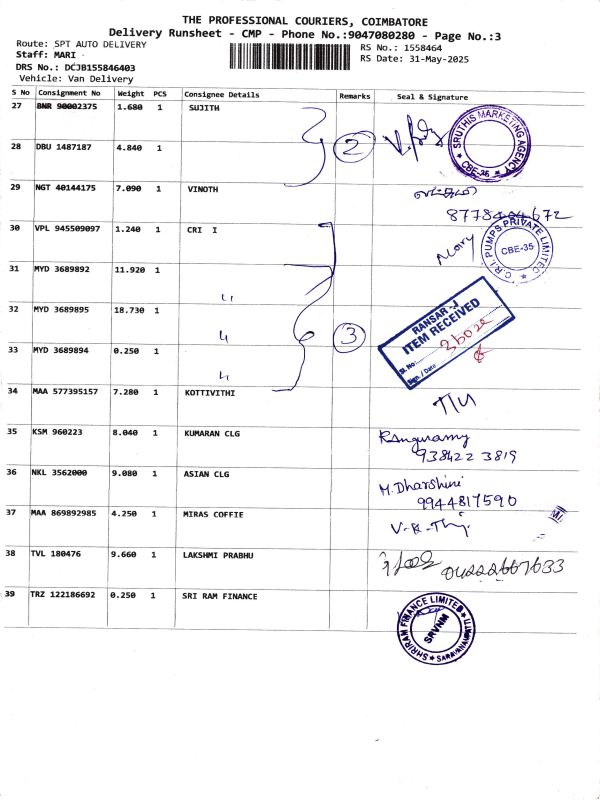 THE PROFESSIONAL COURIERS, COIMBATORE
Delivery Runsheet - CMP - Phone No.:9047080280 - Page No.:3
Route: SPT AUTO DELIVERY
RS No.: 1558464
Staff: MARI
RS Date: 31-May-2025
DRS No.: DCJB155846403
Vehicle: Van Delivery
S No Consignment No Weight PCS Consignee Details Remarks Seal & Signature
27 BNR 90002375 1.680 1 SUJITH
SRUTHIS MARKETING AGENCY
CBE-35
2
28 DBU 1487187 4.840 1
29 NGT 40144175 7.090 1 VINOTH
30 VPL 945509097 1.240 1 CRI I
C.R.I. PUMPS PRIVATE LIMITED
CBE-35
31 MYD 3689892 11.920 1 "
32 MYD 3689895 18.730 1 "
3
RANSAR-J
ITEM RECEIVED
Sl. No:
Sign. / Date:
33 MYD 3689894 0.250 1 "
34 MAA 577395157 7.280 1 KOTTIVITHI
35 KSM 960223 8.040 1 KUMARAN CLG
Ranguramy
938422 3819
36 NKL 3562000 9.080 1 ASIAN CLG
M. Dharshini
9944817590
37 MAA 869892985 4.250 1 MIRAS COFFIE
38 TVL 180476 9.660 1 LAKSHMI PRABHU
39 TRZ 122186692 0.250 1 SRI RAM FINANCE
SHRIRAM FINANCE LIMITED
SRVNM